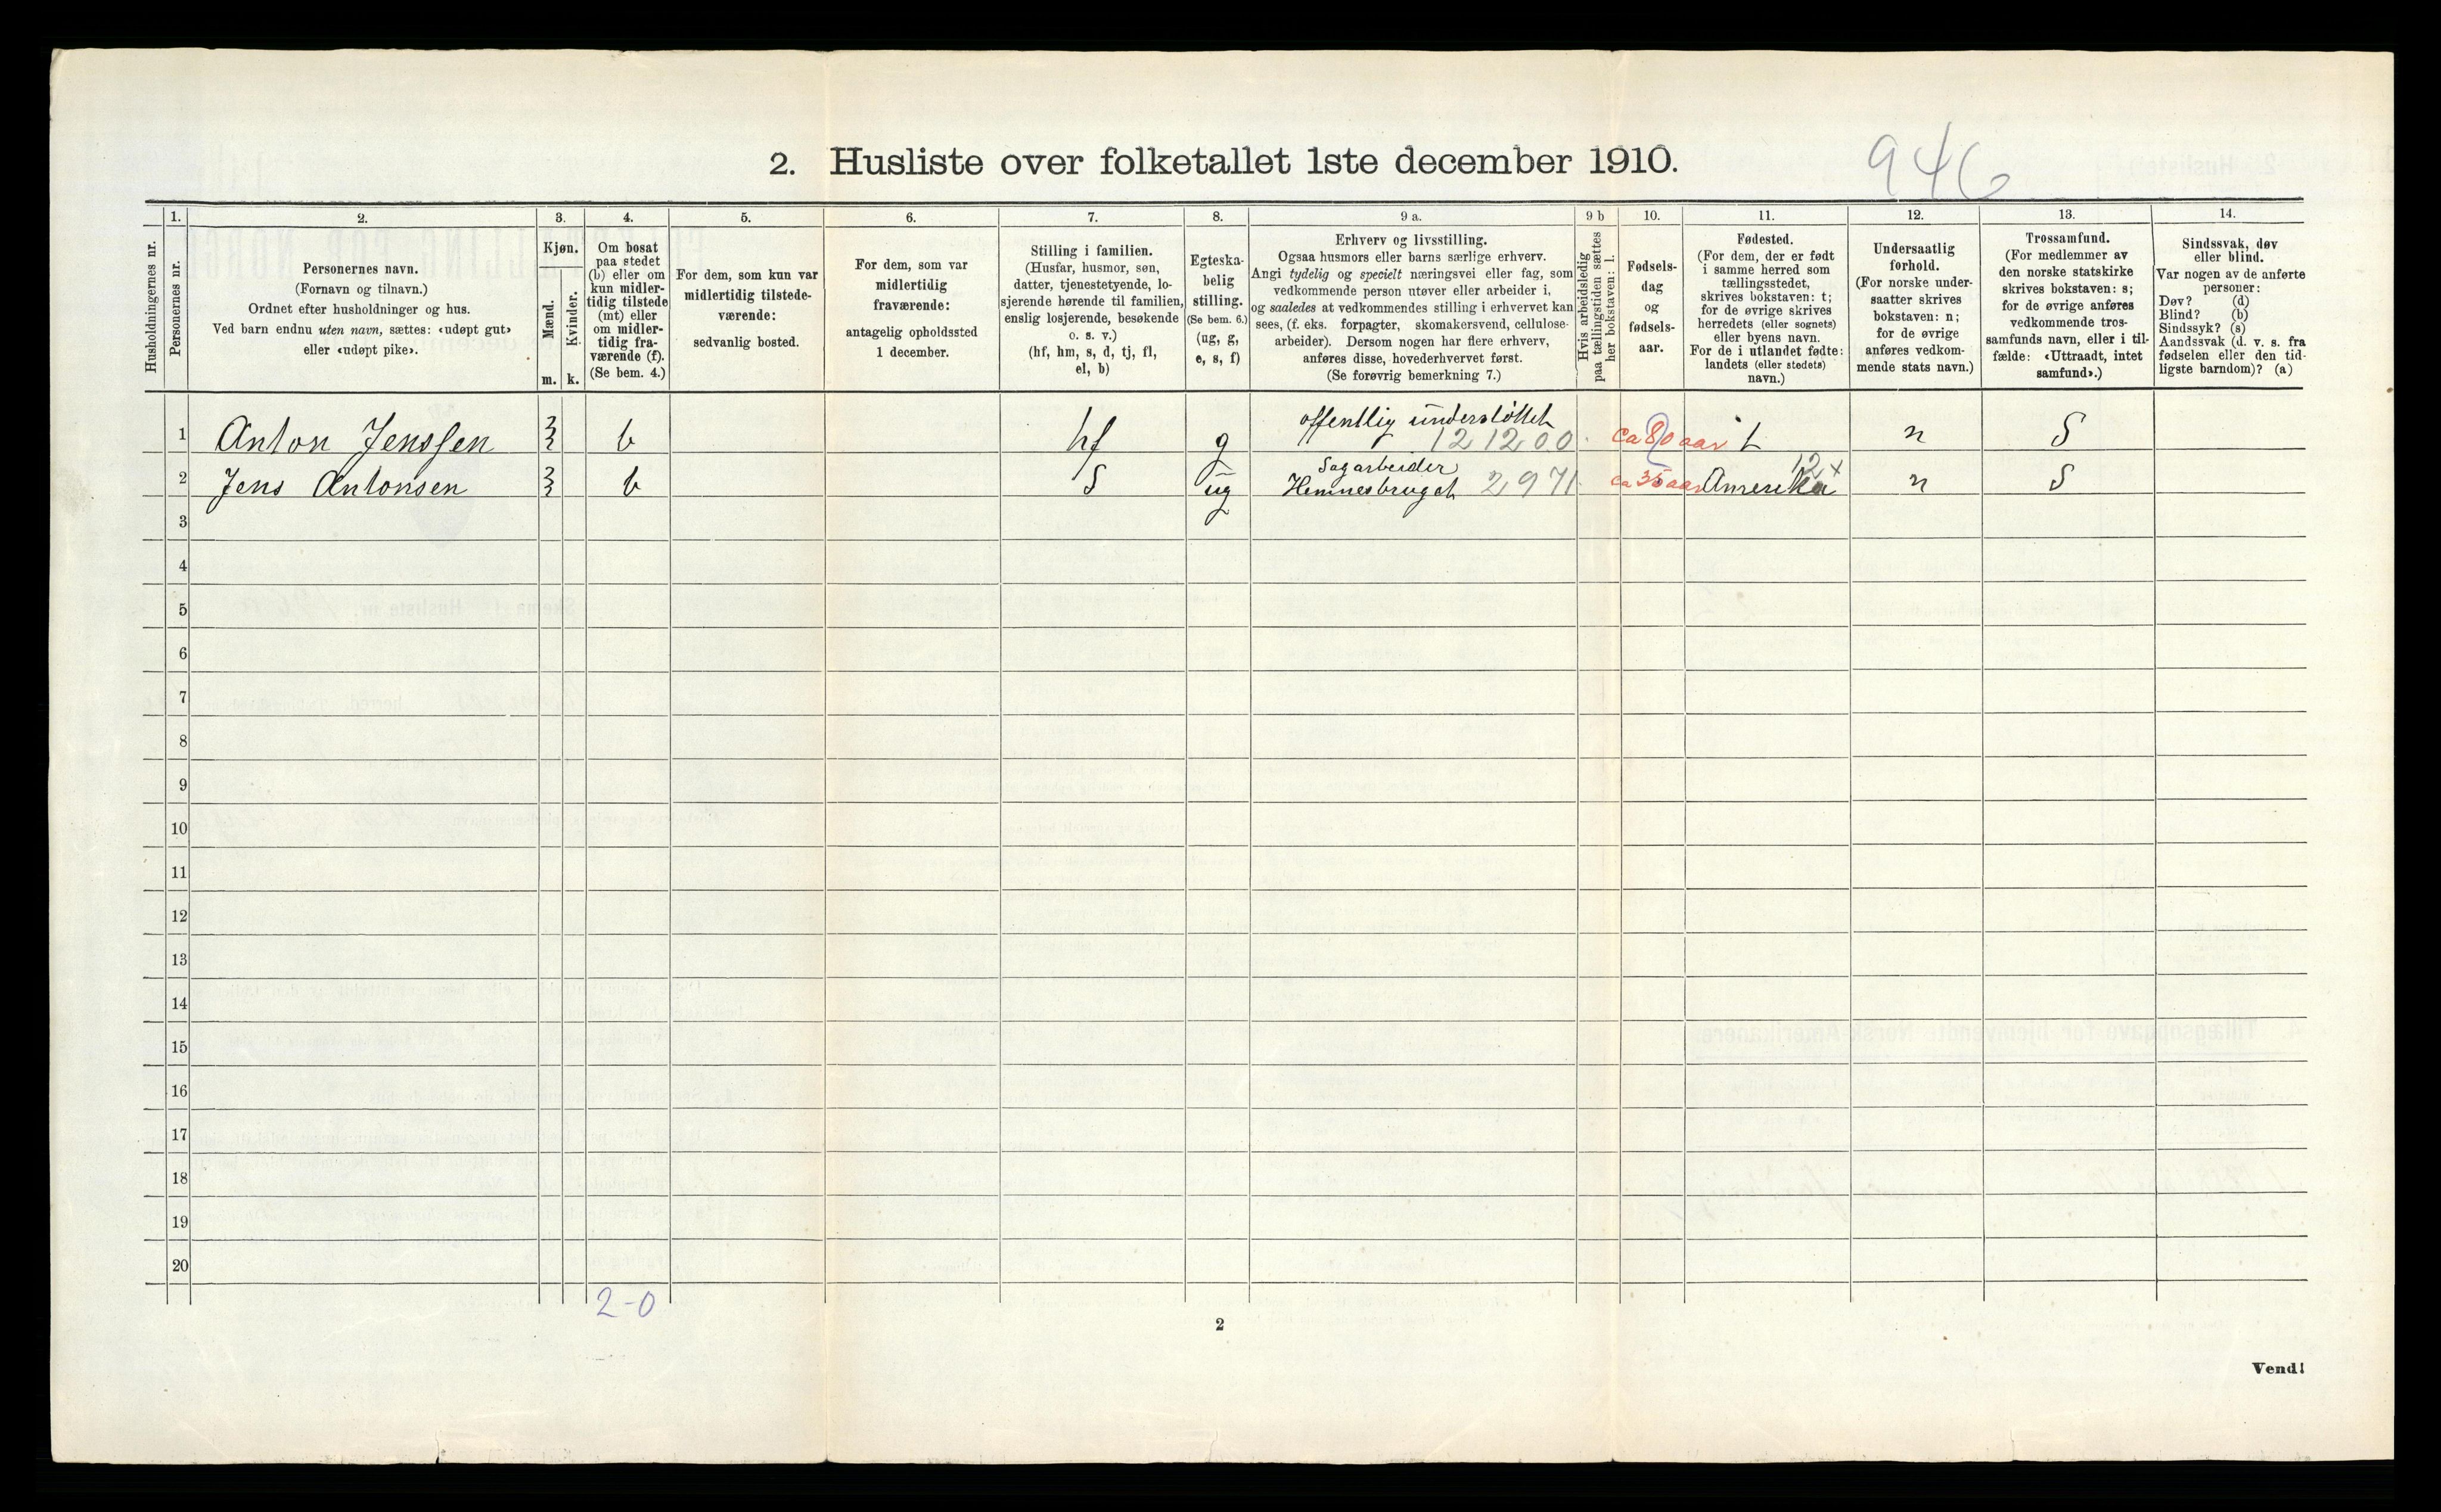 946
2. Husliste over folketallet 1ste december 1910.
Husholdningernes nr.
1.
Personernes nr.
2.
Personernes navn.
(Fornavn og tilnavn.)
Ordnet efter husholdninger og hus.
Ved barn endnu uten navn, sættes: «udøpt gut»
eller «udøpt pike».
3.
Kjøn.
Mænd.
Kvinder.
m. k.
4.
Om bosat
paa stedet
(b) eller om
kun midler-
tidig tilstede
(mt) eller
om midler-
tidig fra-
værende (f).
(Se bem. 4.)
5.
For dem, som kun var
midlertidig tilstede-
værende:
sedvanlig bosted.
6.
For dem, som var
midlertidig
fraværende:
antagelig opholdssted
1 december.
7.
Stilling i familien.
(Husfar, husmor, søn,
datter, tjenestetyende, lo-
sjerende hørende til familien,
enslig losjerende, besøkende
o. s. v.)
(hf, hm, s, d, tj, fl,
el, b)
8.
Egteska-
belig
stilling.
(Se bem. 6.)
(ug, g,
e, s, f)
9 a.
Erhverv og livsstilling.
Ogsaa husmors eller barns særlige erhverv.
Angi tydelig og specielt næringsvei eller fag, som
vedkommende person utøver eller arbeider i,
og saaledes at vedkommendes stilling i erhvervet kan
sees, (f. eks. forpagter, skomakersvend, cellulose-
arbeider). Dersom nogen har flere erhverv,
anføres disse, hovederhvervet først.
(Se forøvrig bemerkning 7.)
9 b
Hvis arbeidsledig
paa tællingstiden sættes
her bokstaven: l.
10.
Fødsels-
dag
og
fødsels-
aar.
11.
Fødested.
(For dem, der er født
i samme herred som
tællingsstedet,
skrives bokstaven: t;
for de øvrige skrives
herredets (eller sognets)
eller byens navn.
For de i utlandet fødte:
landets (eller stedets)
navn.)
12.
Undersaatlig
forhold.
(For norske under-
saatter skrives
bokstaven: n;
for de øvrige
anføres vedkom-
mende stats navn.)
13.
Trossamfund.
(For medlemmer av
den norske statskirke
skrives bokstaven: s;
for de øvrige anføres
vedkommende tros-
samfunds navn, eller i til-
fælde: «Uttraadt, intet
samfund».)
14.
Sindssvak, døv
eller blind.
Var nogen av de anførte
personer:
Døv? (d)
Blind? (b)
Sindssyk? (s)
Aandssvak (d. v. s. fra
fødselen eller den tid-
ligste barndom)? (a)
offentlig understöttet
1 Anton Jenssen b hf g 121200. ca 80 aar t n S
Sagarbeider 12 x
2 Jens Antonsen b S ug Hemnesbruget 2971. ca 35 aar Amerika n S
3
4
5
6
7
8
9
10
11
12
13
14
15
16
17
18
19
20
2-0
2
Vend!